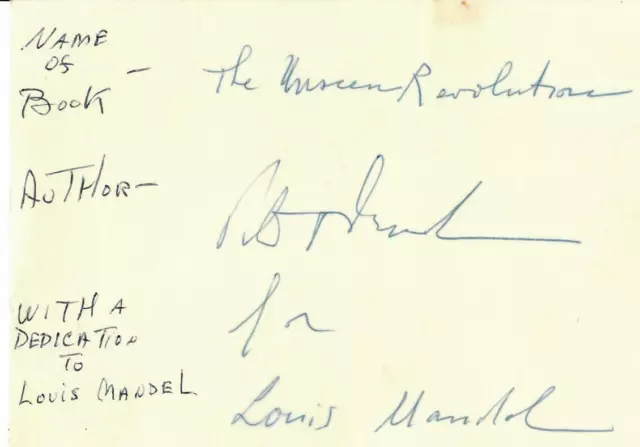 NAME
OF
BOOK — The Unseen Revolution
AUTHOR—
WITH A
DEDICATION
TO
LOUIS MANDEL
for
Louis Mandel